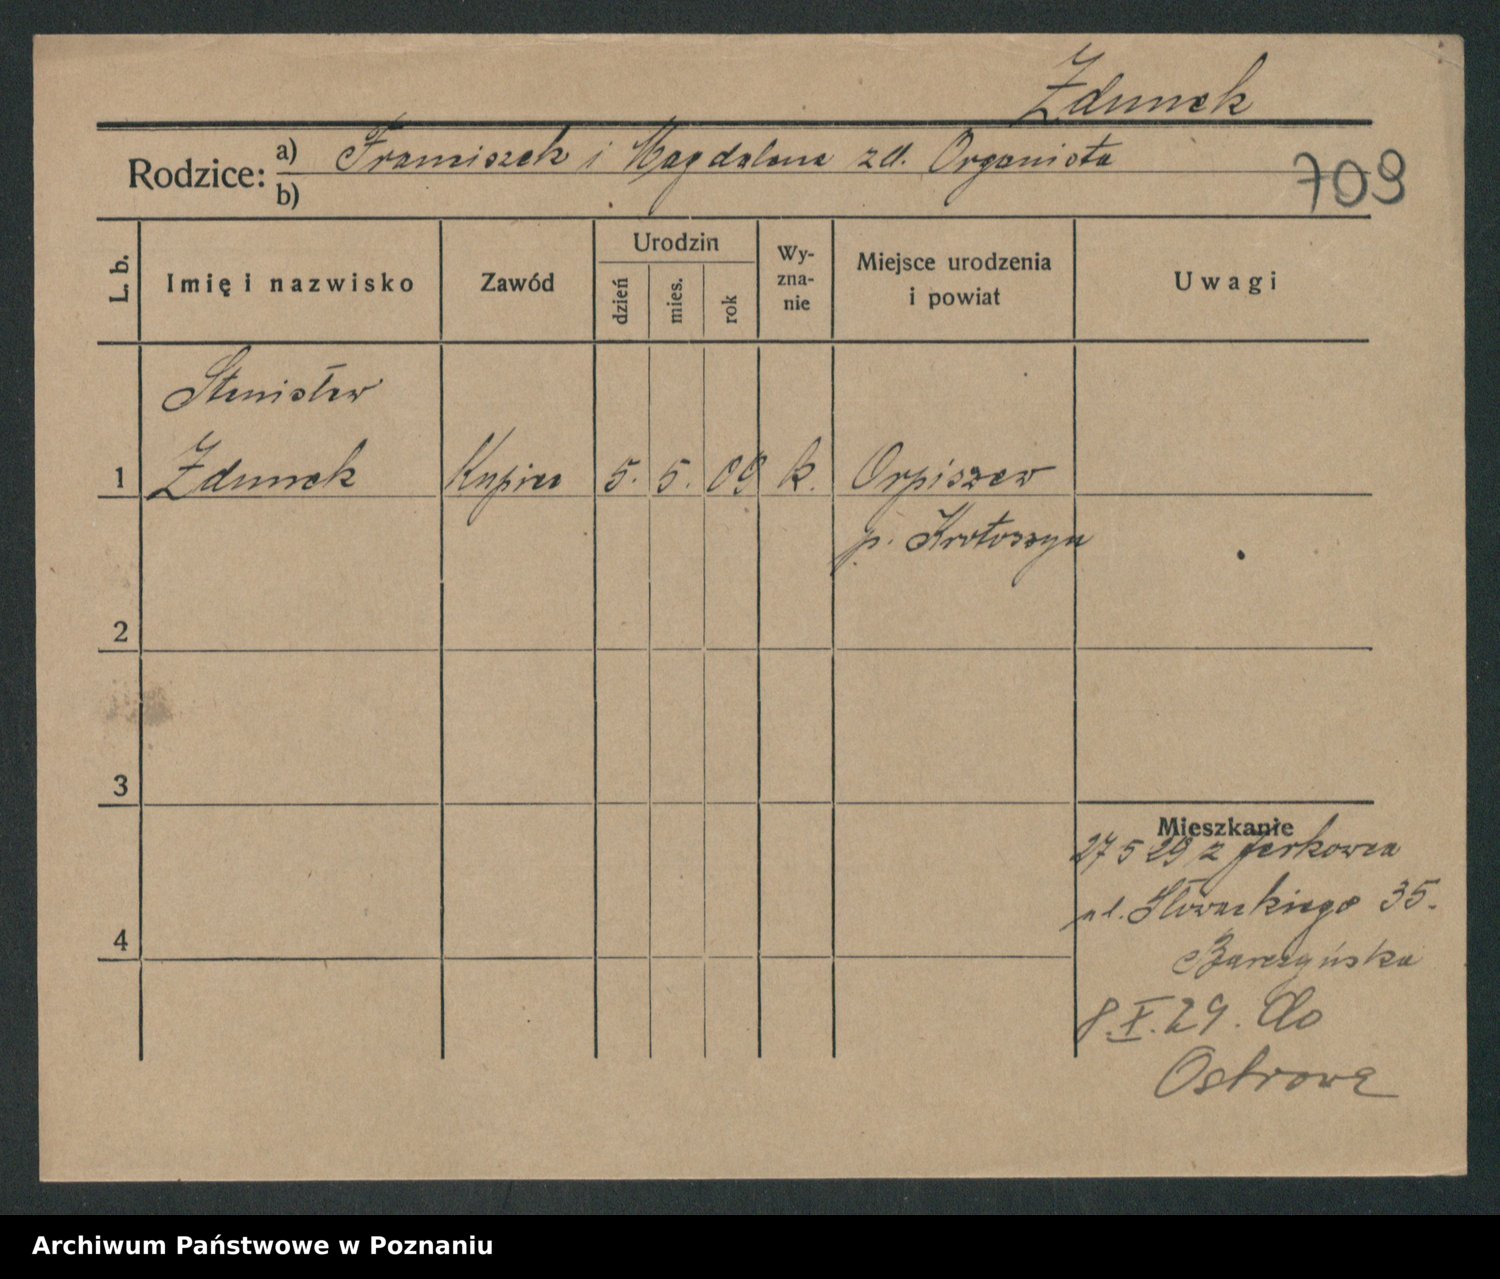 Zdunek
Rodzice: a) Franciszek i Magdalena zd. Organista
b)
709
L. b. Imię i nazwisko Zawód Urodzin dzień mies. rok Wy-zna-nie Miejsce urodzenia i powiat Uwagi
Stanisław
1 Zdunek Kupiec 5. 5. 09 k. Orpiszew
p. Krotoszyn
2
3
Mieszkanie
27 5 29 z Żerkowa
ul. Słowackiego 35.
4
Barczyńska
8.X.29. do
Ostrowa
Archiwum Państwowe w Poznaniu